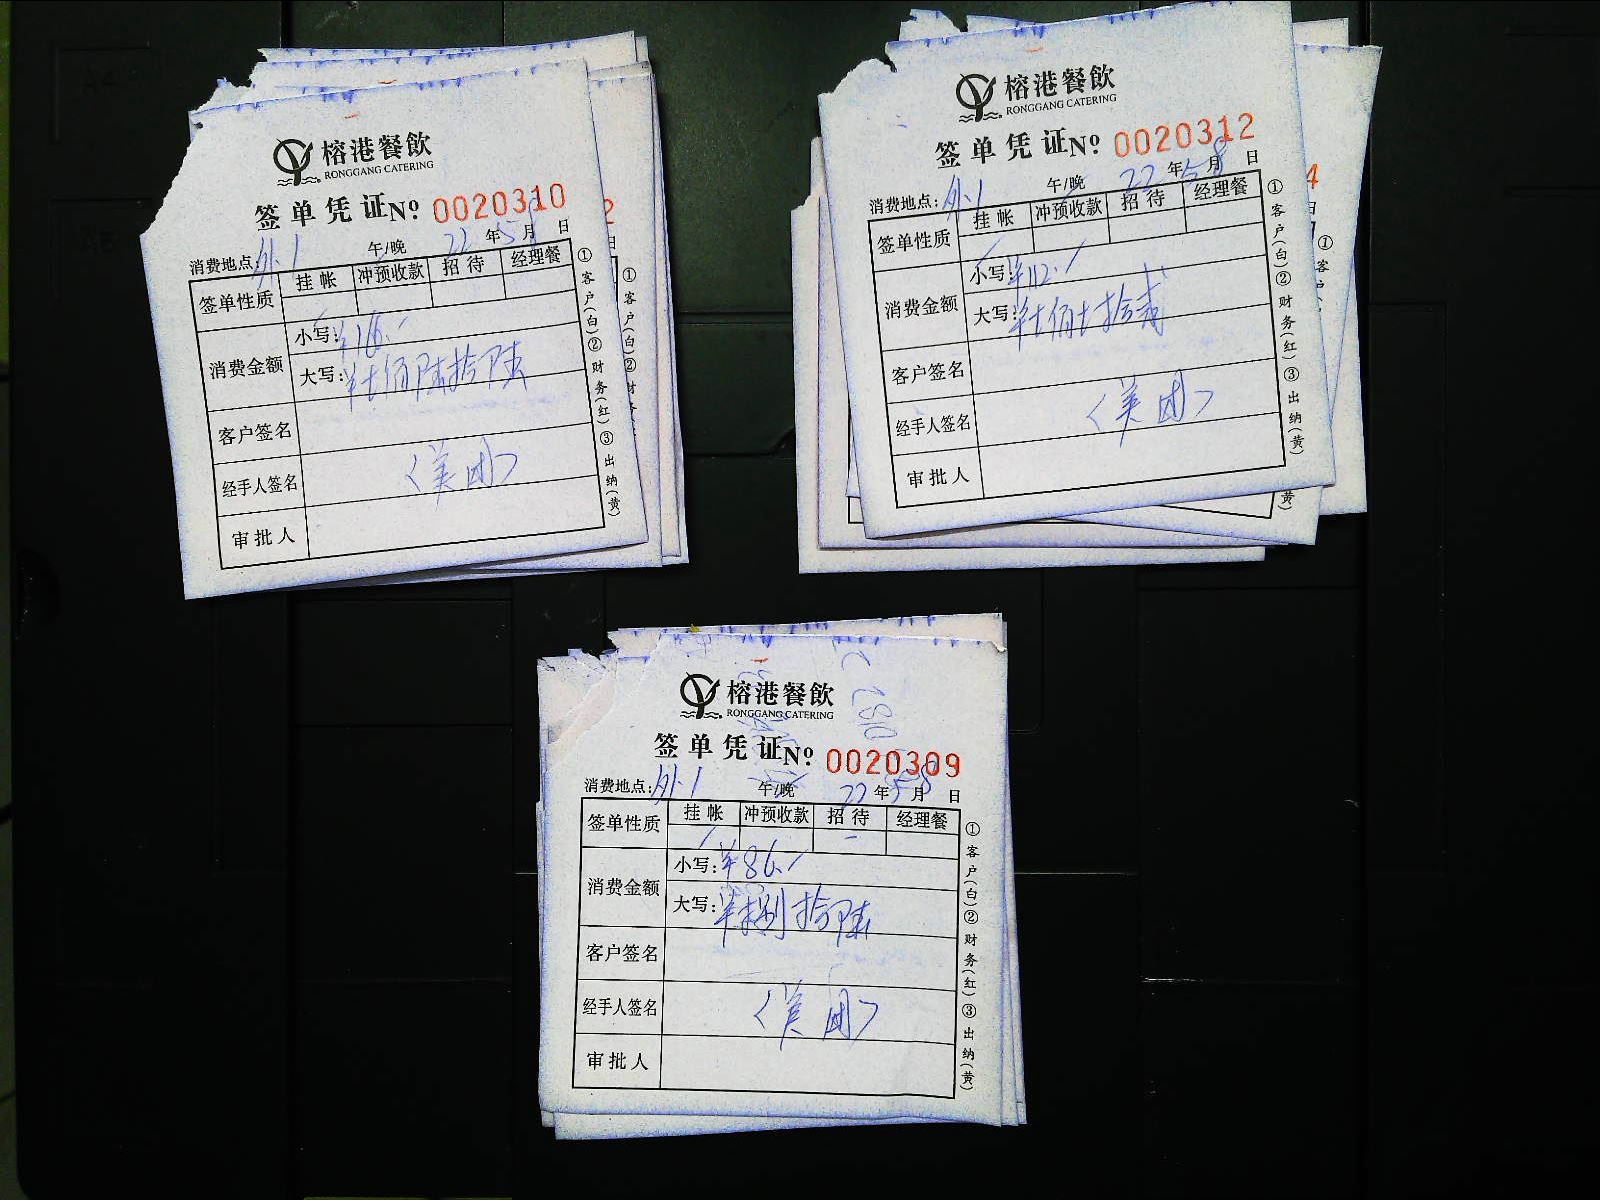 榕港餐飲
RONGGANG CATERING
签单凭证 № 0020310
消费地点: 外1 午/晚 22年5月日
签单性质 挂帐 冲预收款 招待 经理餐
消费金额
小写:
大写:
客户签名
经手人签名 <美团>
审批人
①客户(白)②财务(红)③出纳(黄)
2
日
①客户(白)②财务
榕港餐飲
RONGGANG CATERING
签单凭证 № 0020312
消费地点: 外1 午/晚 22年5月8日
签单性质 挂帐 冲预收款 招待 经理餐
消费金额
小写: ¥112.
大写:
客户签名
经手人签名 <美团>
审批人
①客户(白)②财务(红)③出纳(黄)
4
日
①客户
黄)
榕港餐飲
RONGGANG CATERING
签单凭证 № 0020309
消费地点: 外1 午/晚 22年5月8日
签单性质 挂帐 冲预收款 招待 经理餐
消费金额
小写: ¥86.
大写: ¥捌拾陆
客户签名
经手人签名 <美团>
审批人
①客户(白)②财务(红)③出纳(黄)